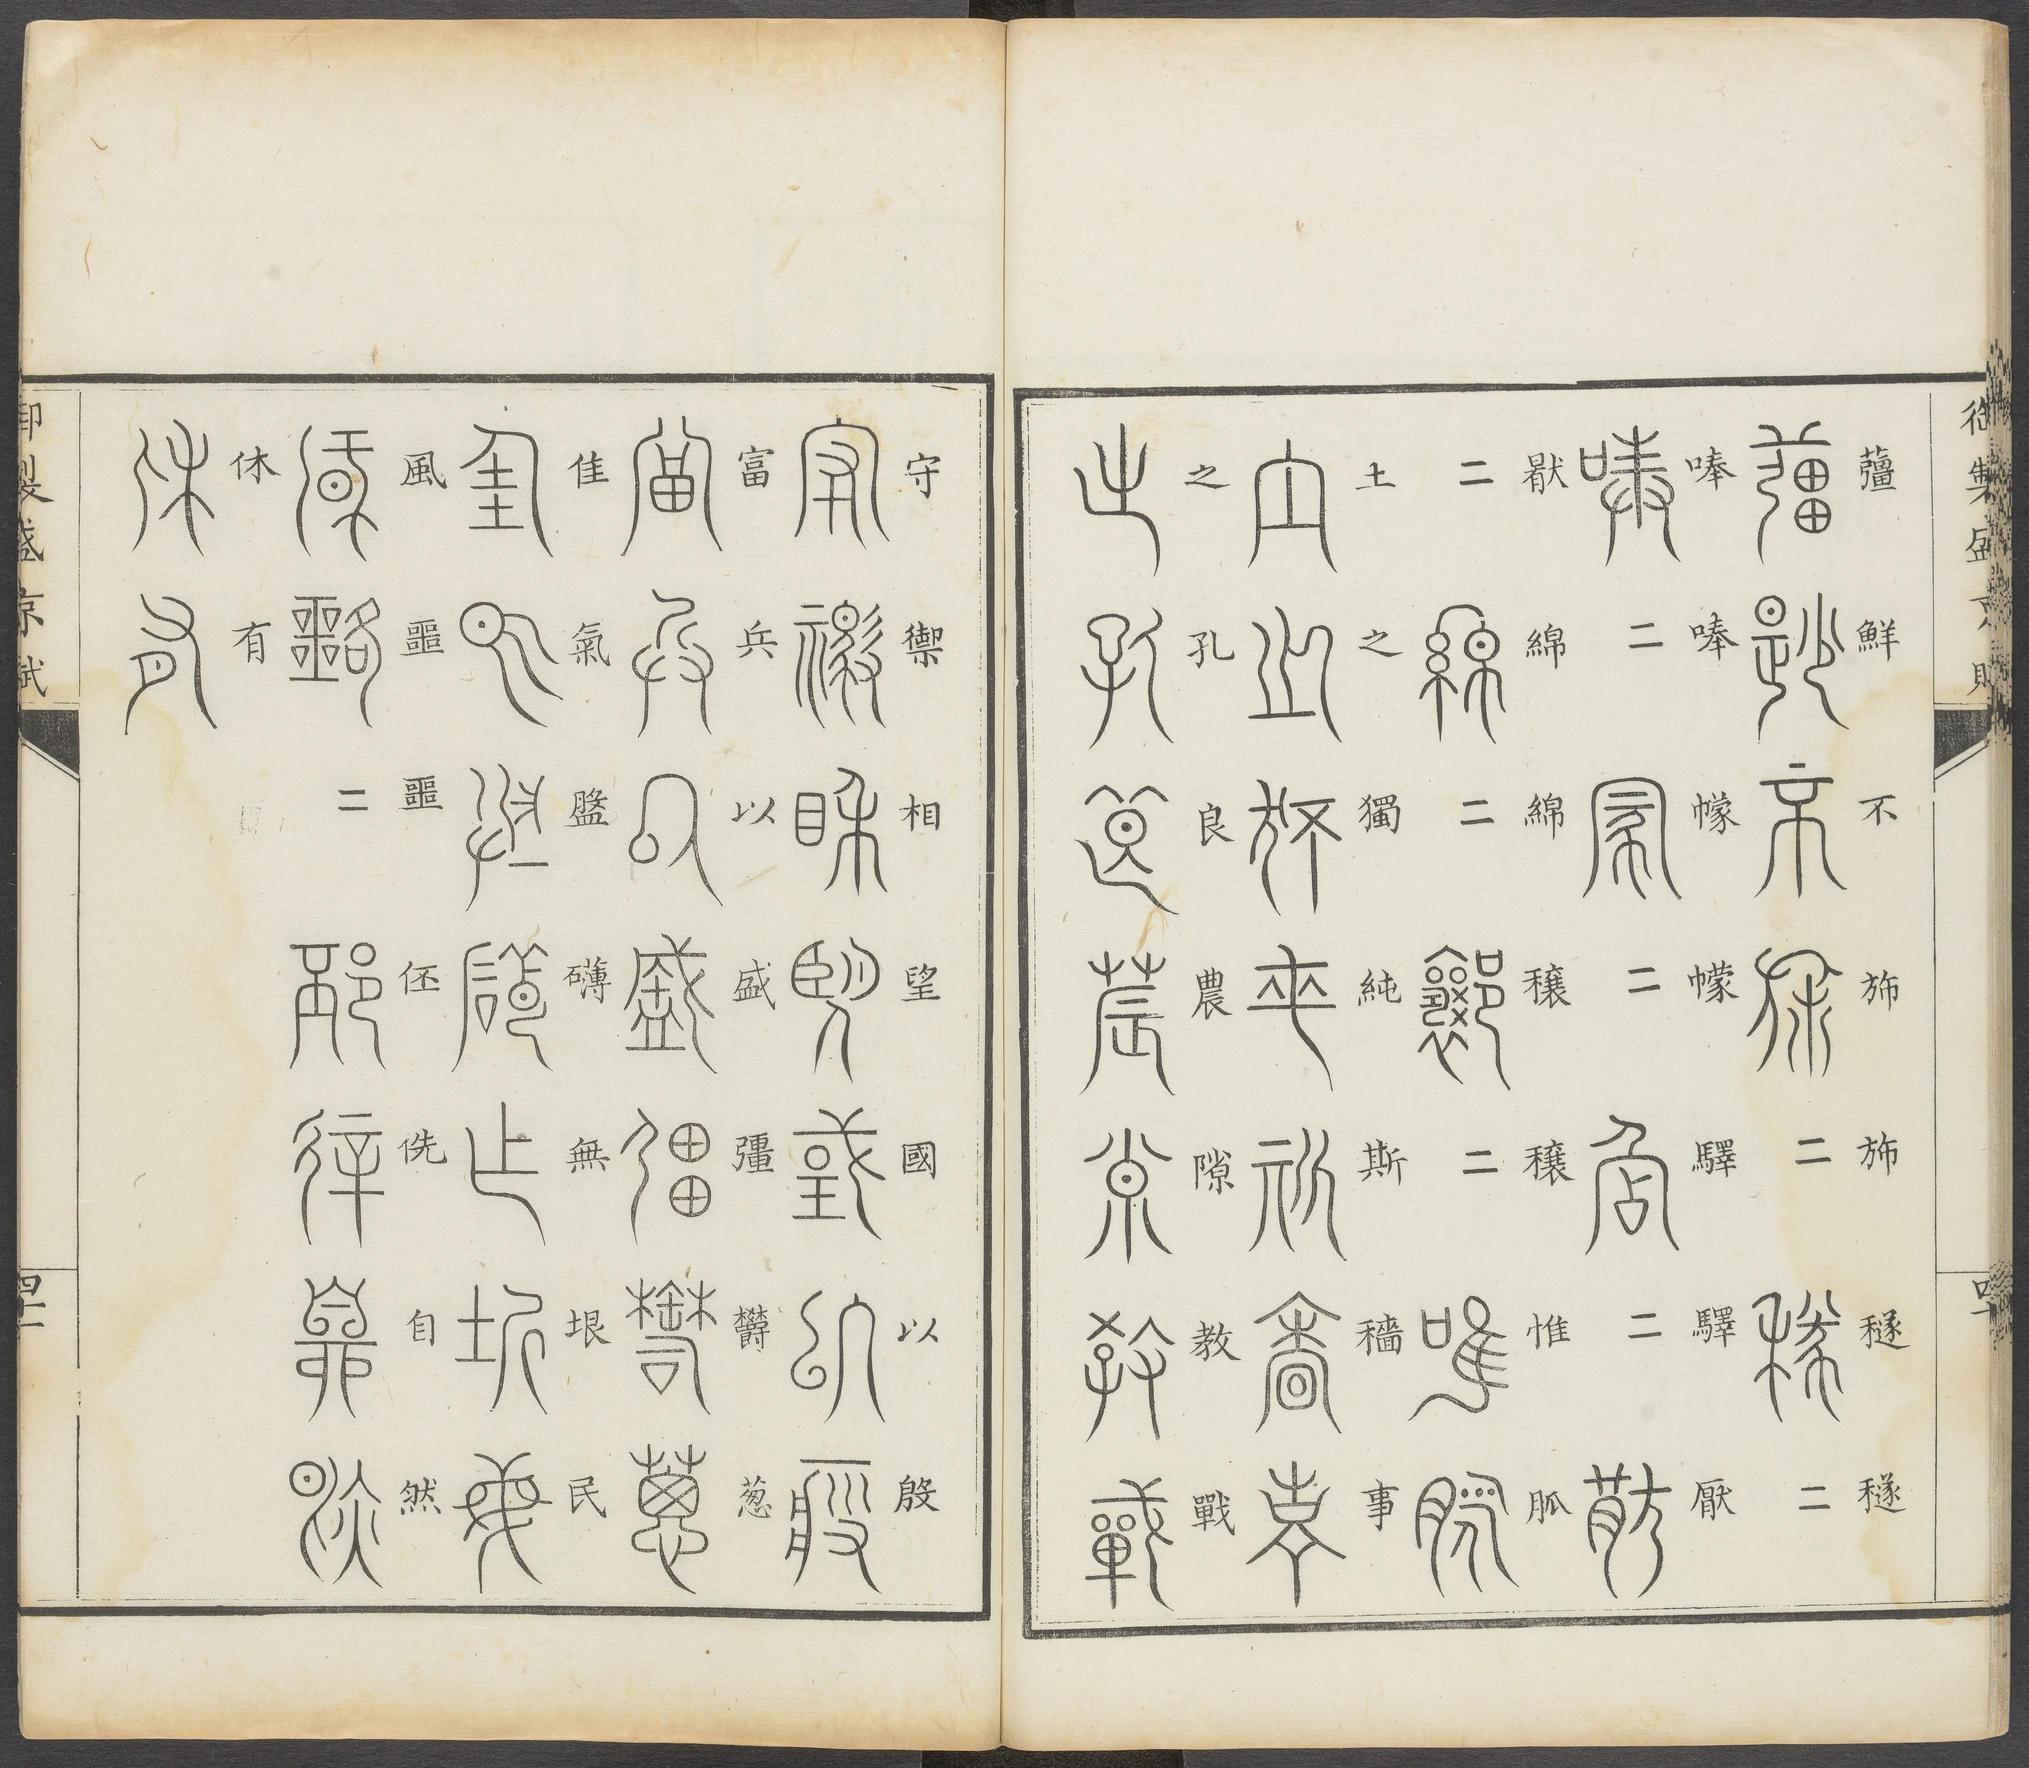 御製盛京賦
虀鮮不斾斾穟穟
唪唪幪幪驛驛厭
厭綿綿穰穰惟胍
土之獨純斯穡事
之孔良農隙教戰
守禦相望國以殷
富兵以盛彊欝葱
佳氣盤礴無垠民
風噩噩伾侁自然
休有
御製盛京賦